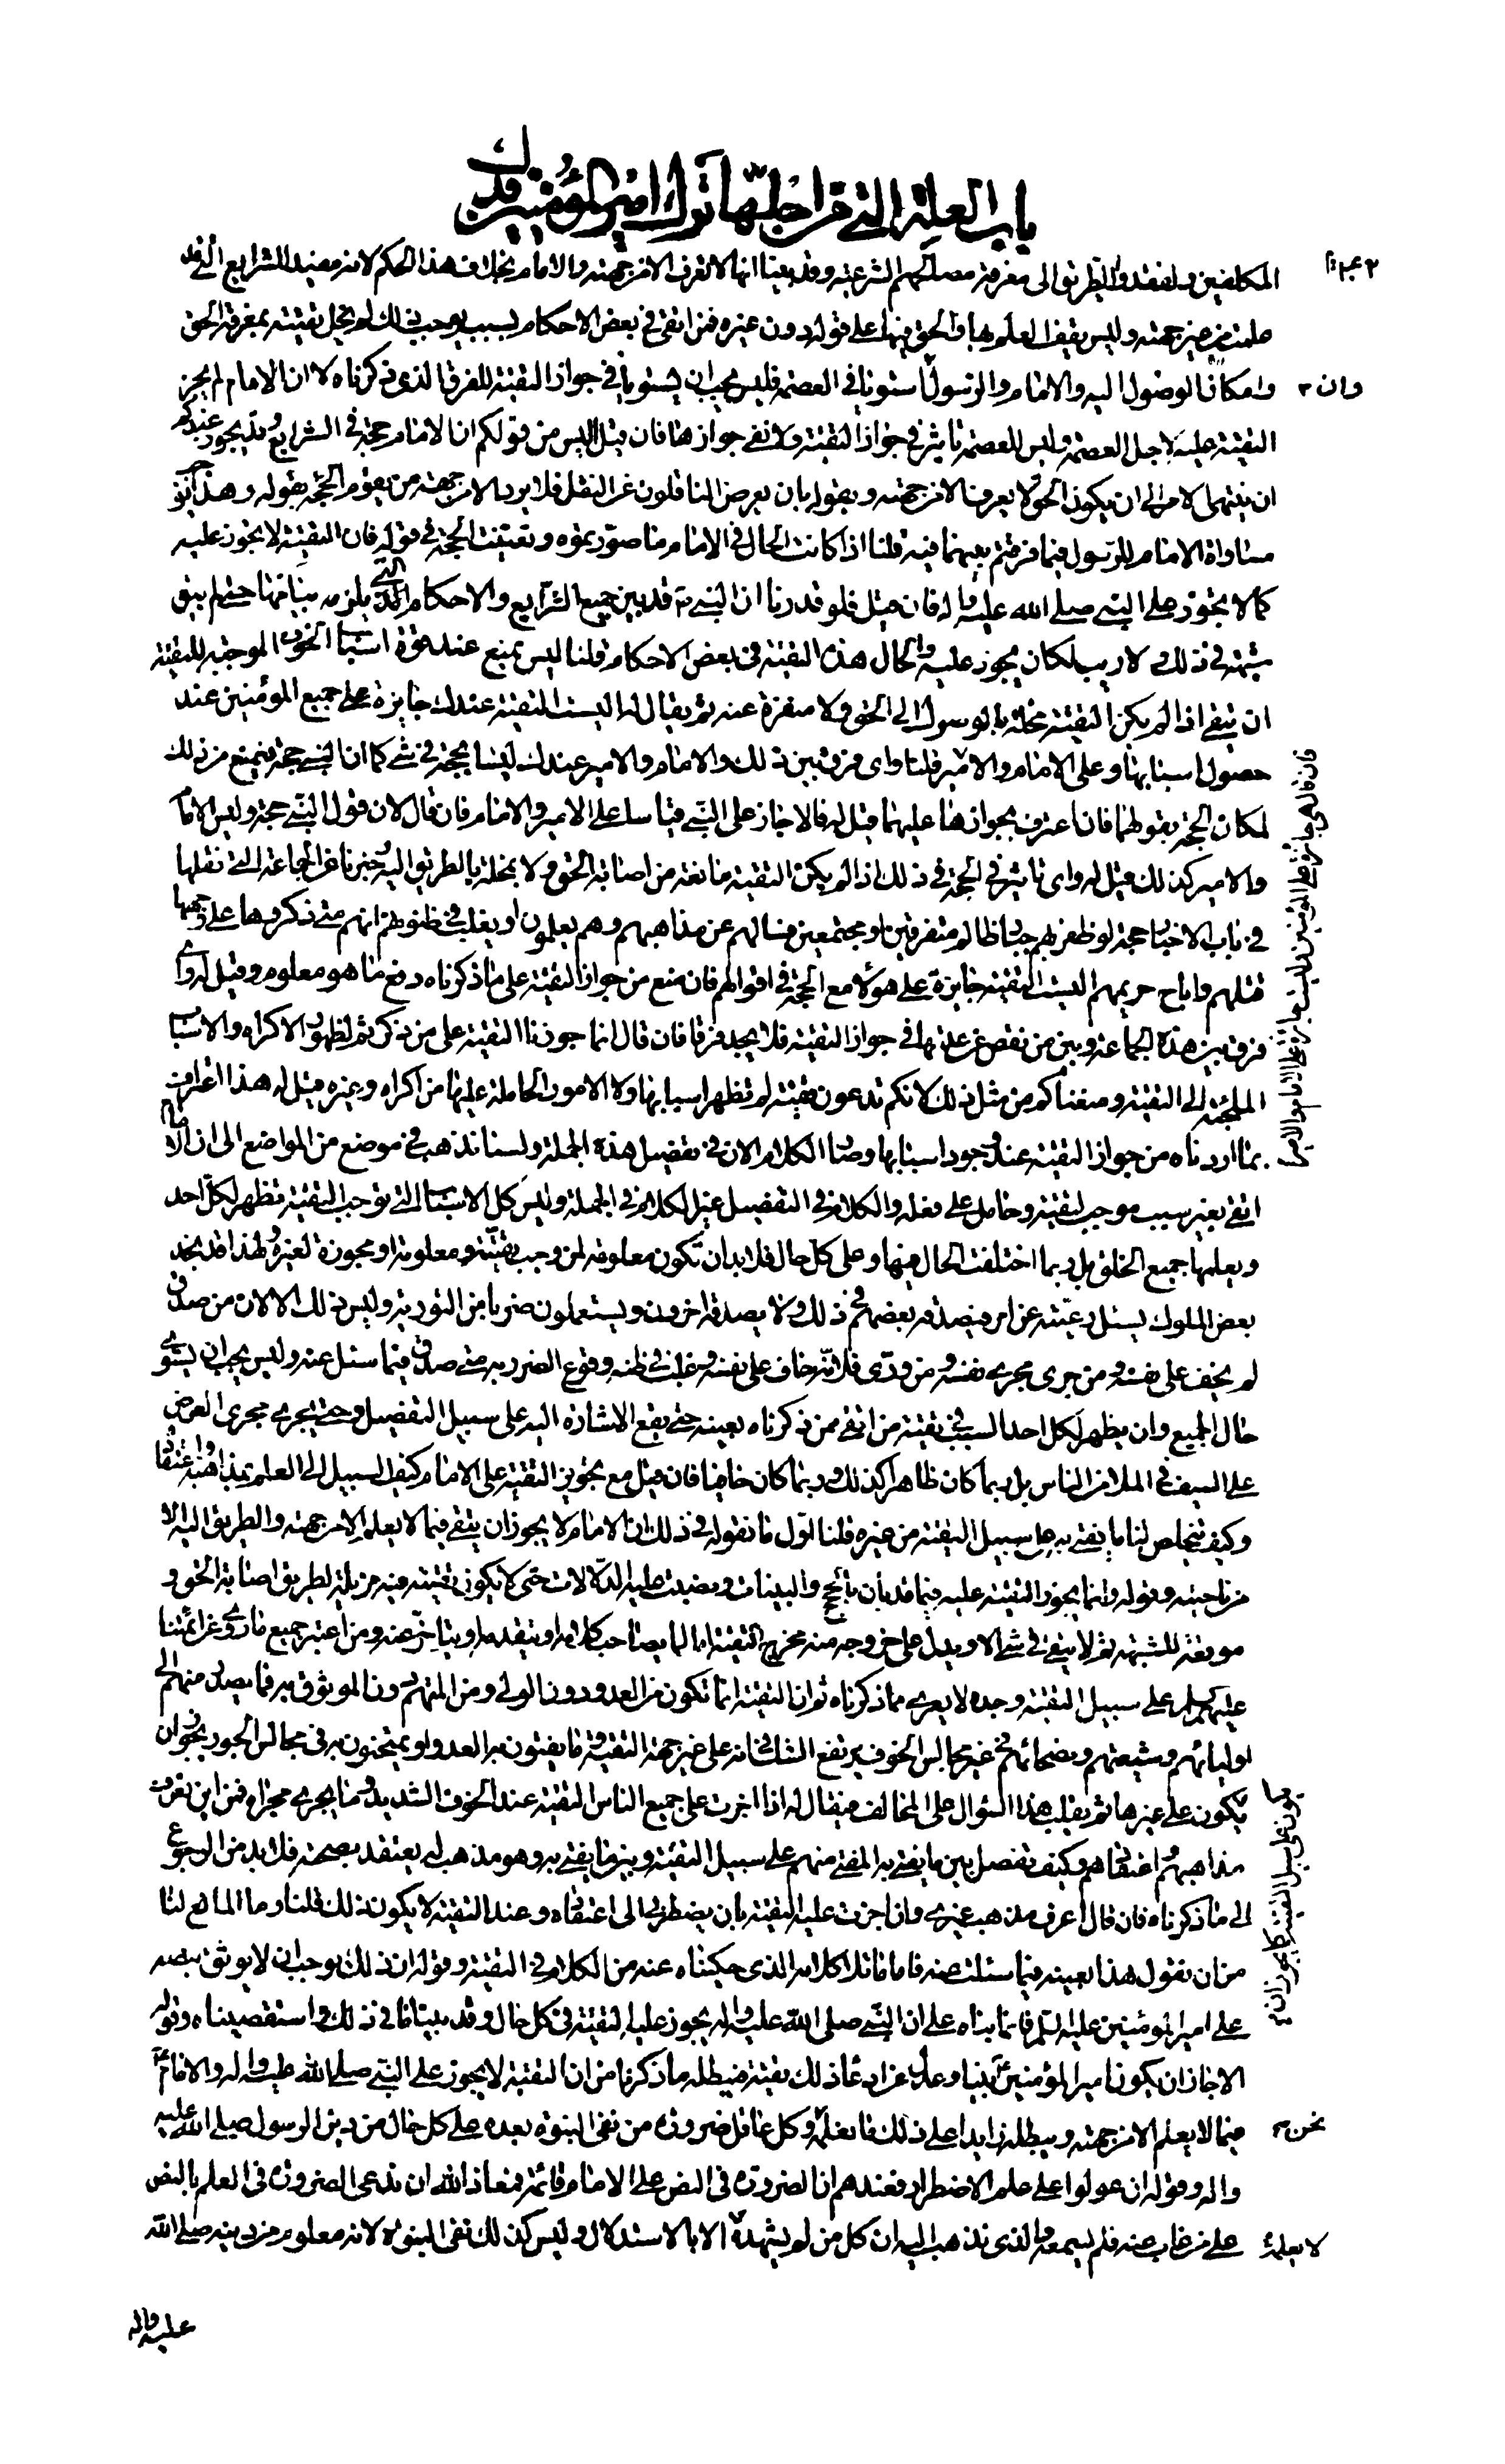 باب العلة التي من اجلها ترك امير المؤمنين فدك
المكلفين ولفقدوا الطريق الى معرفة مصالحهم الشرعية وقد بينا انها لا تعرف الا من جهته والامام بخلاف هذا الحكم لانه مفيد للشرايع التي قد
علمت من غير جهته وليس يقف العلم بها والحق فيها على قوله دون غيره فمن اتقى في بعض الاحكام بسبب يوجب ذلك لم يخل تقيته بمعرفة الحق
وامكان الوصول اليه والامام والرسول استويا في العصمة فليس يجب ان يستويا في جواز التقية للفرق الذي ذكرناه لا ان الامام لم يجز
وان
التقية عليه لاجل العصمة وليس للعصمة تاثير في جواز التقية ولا نفي جوازها فان قيل اليس من قولكم ان الامام حجة في الشرايع وقد يجوز عندكم
ان ينتهي الامر الى ان يكون الحق لا يعرف الا من جهته وبقوله بان يعرض الناقلون عن النقل فلا يرد الا من جهة من يقوم الحجة بقوله وهذا يوجب
مساواة الامام للرسول فيما فرقتم بينهما فيه قلنا اذا كانت الحال في الامام ما صورتموه وتعينت الحجة في قوله فان التقية لا يجوز عليه
كما لا يجوز على النبي صلى الله عليه واله فان قيل فلو قدرنا ان النبي قد بين جميع الشرايع والاحكام التي يلزمه بيانها حتى لم يبق
شبهة في ذلك ولا ريب لكان يجوز عليه والحال هذه التقية في بعض الاحكام قلنا ليس يمنع عند قوة اسباب الخوف الموجبة للتقية
ان يتقي اذا لم يكن التقية مخلة بالوصول الى الحق ولا منفرة عنه ثم يقال له اليست التقية عندك جايزة على جميع المؤمنين عند
حصول اسبابها وعلى الامام والامير قلنا واي فرق بين ذلك والامام والامير عندك ليسا بحجة في شيء كما ان النبي حجة فيمنع من ذلك
فان قال هي جائزة على المؤمنين وليست جائزة على الامام والامير
لمكان الحجة بقولهما فان اعترف بجوازها عليهما قيل له فالا جاز على النبي قياسا على الامير والامام فان قال لان قول النبي حجة وليس الامام
والامير كذلك قيل له واي تاثير في الحجة في ذلك اذا لم يكن التقية مانعة من اصابة الحق ولا بمخلة بالطريق اليه خبرنا عن الجماعة التي نقلها
في باب الاخبار حجة لو ظفر بهم جبار ظالم متفرقين او مجتمعين فسالهم عن مذاهبهم وهم يعلمون او يغلب في ظنونهم انهم متى ذكروها على وجهها
قتلهم واباح حريمهم اليست التقية جايزة على هؤلاء مع الحجة في اقوالهم فان منع من جواز التقية على ما ذكرناه دفع ما هو معلوم وقيل له واي
فرق بين هذه الجماعة وبين من نقص عن عدتها في جواز التقية فلا يجد فرقا فان قال انما جوزنا التقية على من ذكرتم لظهور الاكراه والاسباب
الملجئة الى التقية ومنعناكم من مثل ذلك لانكم تدعون تقية لم تظهر اسبابها ولا الامور الحاملة عليها من اكراه وغيره قيل له هذا اعتراف
بما اردناه من جواز التقية عند وجود اسبابها وصار الكلام الان في تفصيل هذه الجملة ولسنا نذهب في موضع من المواضع الى ان الامام
اتقى بغير سبب موجب لتقية وحامل على فعله والكلام في التفصيل غير الكلام في الجملة وليس كل الاسباب التي توجب التقية تظهر لكل احد
ويعلمها جميع الخلق بل ربما اختلفت الحال فيها وعلى كل حال فلا بد ان تكون معلومة لمن وجبت تقيته ومعلومة او مجوزة لغيره ولهذا قد نجد
بعض الملوك يسئل رعيته عن امر فيصدقه بعضهم في ذلك ولا يصدقه اخرون ويستعملون ضربا من التورية وليس ذلك الا لان من صدق
لم يخف على نفسه ومن جرى مجرى نفسه ومن ورى فلانه خاف على نفسه وغلب في ظنه وقوع الضرر به متى صدق فيما سئل عنه وليس يجب ان يستوى
حال الجميع وان يظهر لكل احد السبب في تقية من اتقى ممن ذكرناه بعينه حتى يقع الاشارة اليه على سبيل التفصيل وحتى يجري مجرى العرض
على السيف في الملا من الناس بل ربما كان ظاهرا كذلك وربما كان خافيا فان قيل مع تجويز التقية على الامام كيف السبيل الى العلم بمذاهبه واعتقاده
وكيف يتخلص لنا ما يفتي به على سبيل التقية من غيره قلنا اول ما نقوله في ذلك ان الامام لا يجوز ان يتقي فيما لا يعلم الا من جهته والطريق اليه الا
من ناحيته وقوله وانما يجوز التقية عليه فيما قد بان بالحجج والبينات ونصبت عليه الدلالات حتى لا يكون تقيته فيه مزيلة لطريق اصابة الحق و
موقعة للشبهة ثم لا يتقي في شيء الا ويدل على خروجه منه مخرج التقية اما لما يصاحب كلامه او يتقدمه او يتاخر عنه ومن اعتبر جميع ما روي عن ائمتنا
عليهم السلام على سبيل التقية وجده لا يعرى مما ذكرناه ثم ان التقية انما تكون من العدو دون الولي ومن المتهم دون الموثوق به فما يصدر منهم الى
اوليائهم وشيعتهم ونصحائهم في غير مجالس الخوف يرتفع الشك في انه على غير جهة التقية وما يفتون به العدو او يمتحنون به في مجالس الجور يجوز ان
يكون على غيرها ثم يقلب هذا السؤال على المخالف فيقال له اذا اجزت على جميع الناس التقية عند الخوف الشديد وما يجري مجراه فمن اين تعرف
يكون على سبيل التقية كما يجوز ان
مذاهبهم واعتقادهم وكيف تفصل بين ما يفتي به المفتي منهم على سبيل التقية وبين ما يفتي به وهو مذهب له يعتقد بصحته فلا بد من الرجوع
الى ما ذكرناه فان قال اعرف مذهب غيري وان اجزت عليه التقية بان يضطرني الى اعتقاده وعند التقية لا يكون ذلك قلنا وما المانع لنا
من ان نقول هذا بعينه فيما سئلت عنه فاما ما تلا كلامه الذي حكيناه عنه من الكلام في التقية وقوله ان ذلك يوجب ان لا يوثق بنصه
على امير المؤمنين عليه السلم فانما بناه على ان النبي صلى الله عليه واله يجوز عليه التقية في كل حال وقد بينا ما في ذلك واستقصيناه وقوله
الا جاز ان يكون امير المؤمنين نبيا وعدل عن ادعاء ذلك تقية فيبطله ما ذكرنا من ان التقية لا يجوز على النبي صلى الله عليه واله والامام
فيما لا يعلم الا من جهته ويبطله زايدا على ذلك ما نعلمه وكل عاقل ضرورة من نفي النبوة بعده على كل حال من دين الرسول صلى الله عليه
نحن
واله وقوله ان عولوا على علم الاضطرار فعندهم ان الضرورة في النص على الامام قائمة فمعاذ الله ان ندعي الضرورة في العلم بالنص
على من غاب عنه فلم يسمعه والذي نذهب اليه ان كل من لم يشهده الا بالاستدلال وليس كذلك نفي النبوة لانه معلوم من دينه صلى الله
لا يعلمه
عليه واله